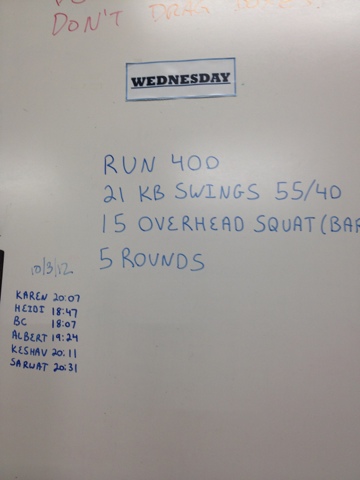 DON'T DRAG
WEDNESDAY
RUN 400
21 KB SWINGS 55/40
15 OVERHEAD SQUAT (BAR
5 ROUNDS
10/3/12
KAREN 20:07
HEIDI 18:47
BC 18:07
ALBERT 19:24
KESHAV 20:11
SARWAT 20:31